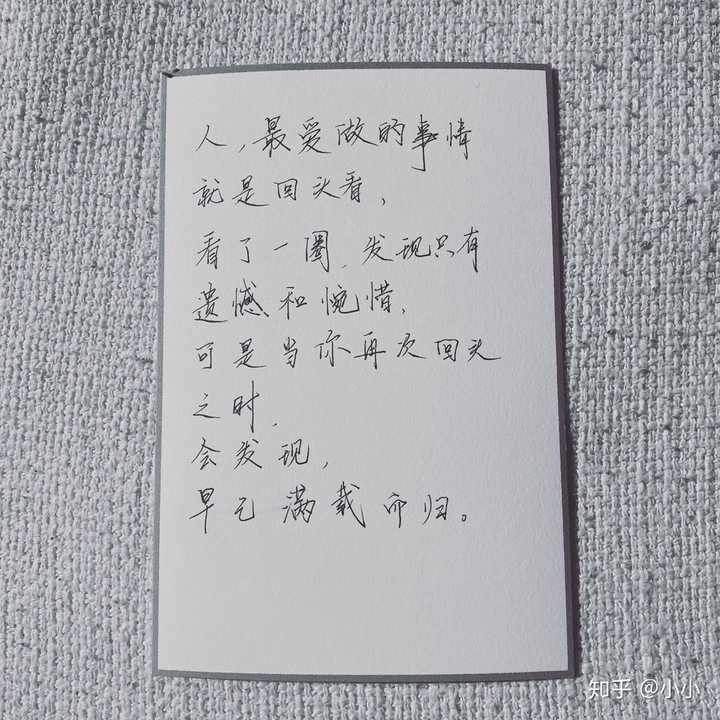 人,最爱做的事情
就是回头看,
看了一圈,发现只有
遗憾和惋惜,
可是当你再次回头
之时,
会发现,
早已满载而归。
知乎 @小小